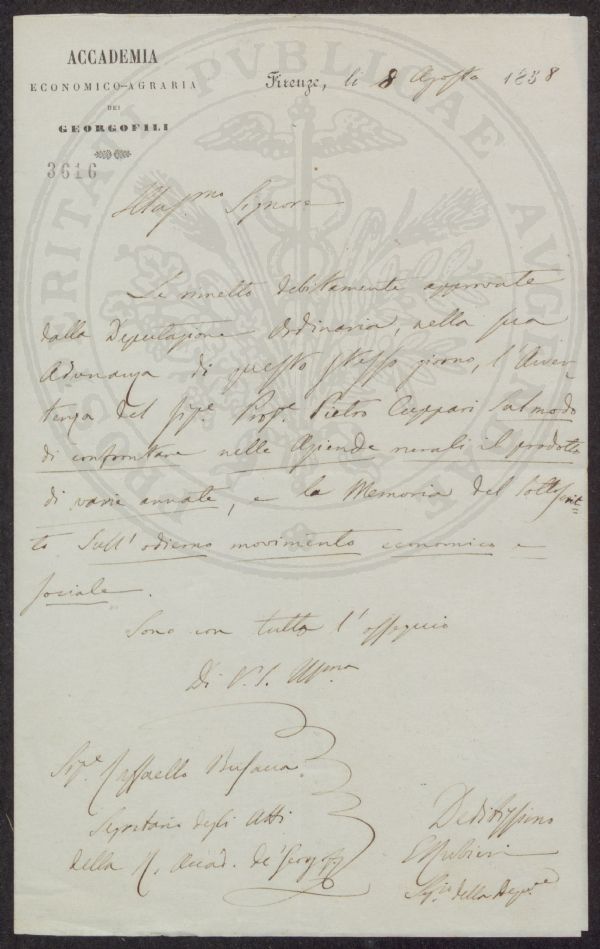 ACCADEMIA
ECONOMICO-AGRARIA
DEI
GEORGOFILI
3616
Firenze, li 8 Agosto 1858
PROSPERITATI PVBLICAE AVGENDAE
Illus.mo Signore
Le rimetto debitamente approvate
dalla Deputazione Ordinaria, nella sua
Adunanza di questo stesso giorno, l'Avver-
tenza del Sig.e Prof.e Pietro Cuppari Sul modo
di confrontare nelle Aziende rurali il prodotto
di varie annate, e la Memoria del sottoscrit=
to Sull'odierno movimento economico e
sociale.
Sono con tutto l'ossequio
Di V.S. Illma
Sig.e Raffaello Busacca
Segretario degli Atti
della R. Accad. de' Georgof
Deditissimo
Seg.rio della Dep.ne